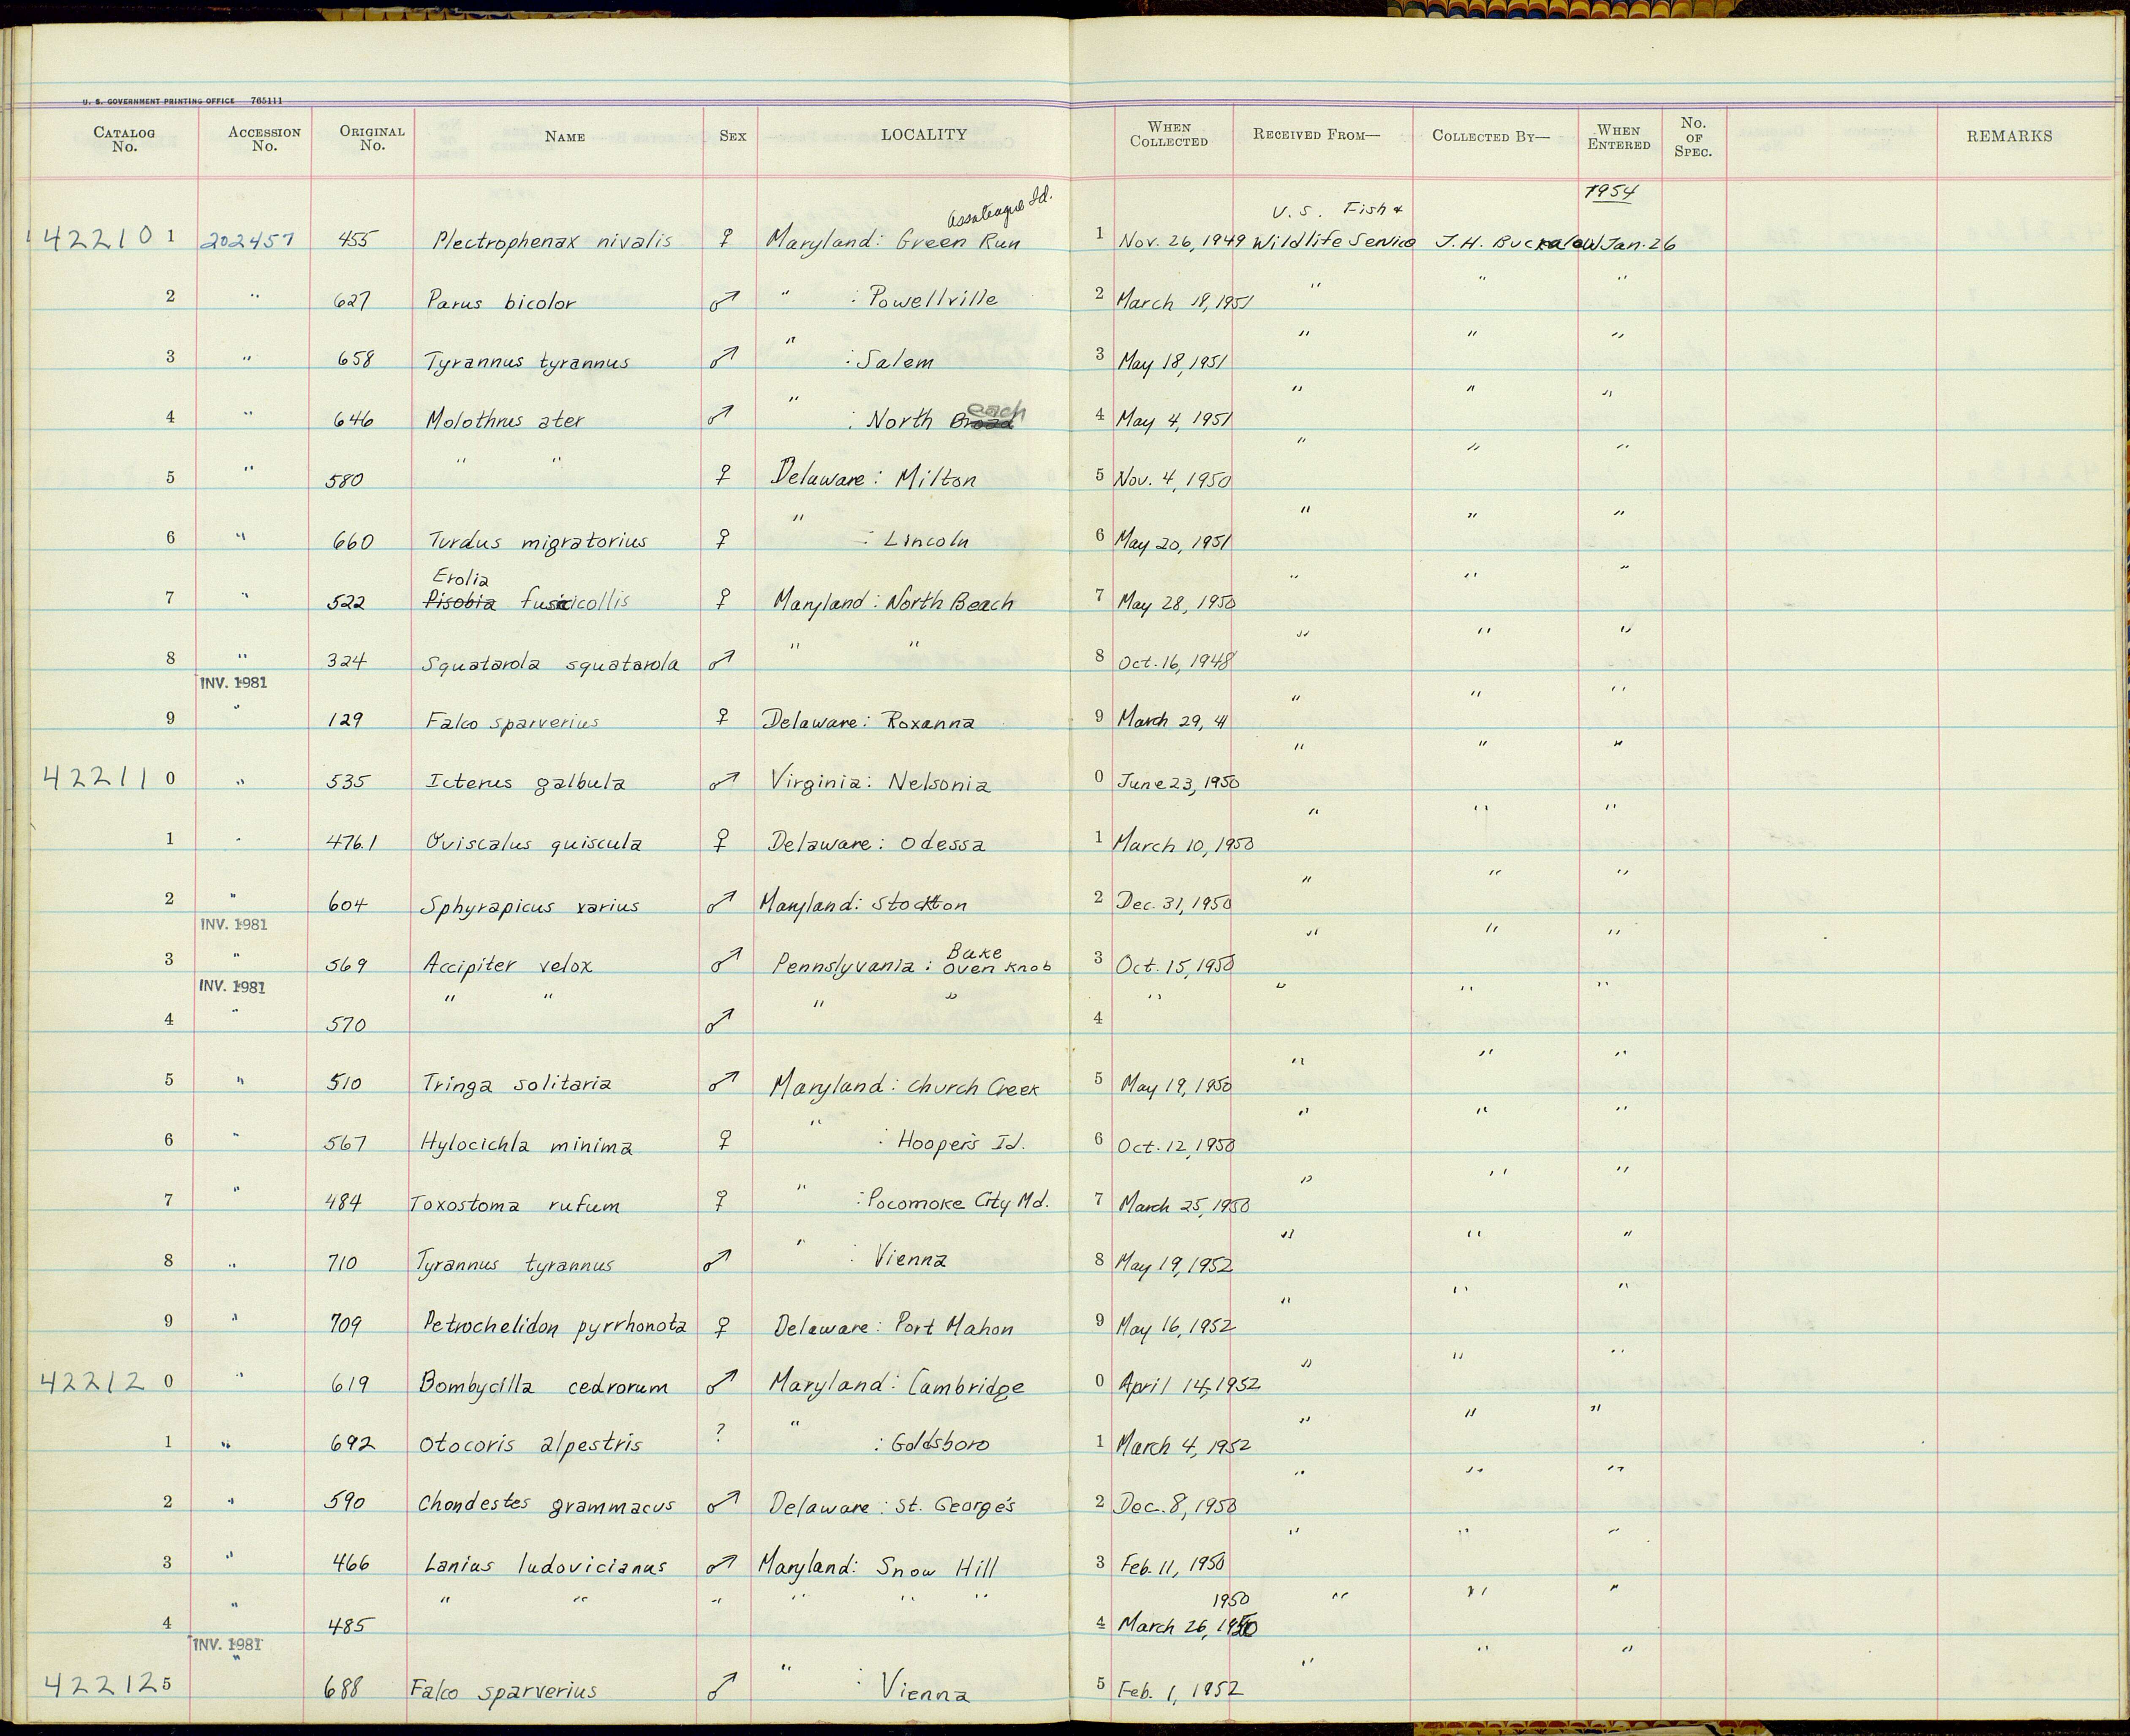 U. S. GOVERNMENT PRINTING OFFICE 765111
CATALOG No. ACCESSION No. ORIGINAL No. NAME SEX LOCALITY WHEN COLLECTED RECEIVED FROM— COLLECTED BY— WHEN ENTERED No. OF SPEC. REMARKS
1954
Assateague Id. U. S. Fish &
422101 202457 455 Plectrophenax nivalis ♀ Maryland: Green Run 1 Nov. 26, 1949 Wildlife Service J. H. Buckalew Jan. 26
2 " 627 Parus bicolor ♂ " : Powellville 2 March 18, 1951 " " "
3 " 658 Tyrannus tyrannus ♂ " : Salem 3 May 18, 1951 " " "
each
4 " 646 Molothrus ater ♂ " : North Broad 4 May 4, 1951 " " "
5 " 580 " " ♀ Delaware: Milton 5 Nov. 4, 1950 " " "
6 " 660 Turdus migratorius ♀ " : Lincoln 6 May 20, 1951 " " "
Erolia
7 " 522 Pisobia fuscicollis ♀ Maryland: North Beach 7 May 28, 1950 " " "
8 " 324 Squatarola squatarola ♂ " " 8 Oct. 16, 1948 " " "
INV. 1981
9 " 129 Falco sparverius ♀ Delaware: Roxanna 9 March 29, 41 " " "
422110 " 535 Icterus galbula ♂ Virginia: Nelsonia 0 June 23, 1950 " " "
1 " 476.1 Quiscalus quiscula ♀ Delaware: Odessa 1 March 10, 1950 " " "
2 " 604 Sphyrapicus varius ♂ Maryland: Stockton 2 Dec. 31, 1950 " " "
INV. 1981
Bake
3 " 569 Accipiter velox ♂ Pennslyvania: Oven Knob 3 Oct. 15, 1950 " " "
INV. 1981
4 " 570 " " ♂ " " 4 " " " "
5 " 510 Tringa solitaria ♂ Maryland: Church Creek 5 May 19, 1950 " " "
6 " 567 Hylocichla minima ♀ " : Hooper's Id. 6 Oct. 12, 1950 " " "
7 " 484 Toxostoma rufum ♀ " : Pocomoke City Md. 7 March 25, 1950 " " "
8 " 710 Tyrannus tyrannus ♂ " : Vienna 8 May 19, 1952 " " "
9 " 709 Petrochelidon pyrrhonota ♀ Delaware: Port Mahon 9 May 16, 1952 " " "
422120 " 619 Bombycilla cedrorum ♂ Maryland: Cambridge 0 April 14, 1952 " " "
1 " 692 Otocoris alpestris ? " : Goldsboro 1 March 4, 1952 " " "
2 " 590 Chondestes grammacus ♂ Delaware: St. George's 2 Dec. 8, 1950 " " "
3 " 466 Lanius ludovicianus ♂ Maryland: Snow Hill 3 Feb. 11, 1950 " " "
1950
4 " 485 " " " " " " 4 March 26, 1950 " " "
INV. 1981
422125 " 688 Falco sparverius ♂ " : Vienna 5 Feb. 1, 1952 " " "